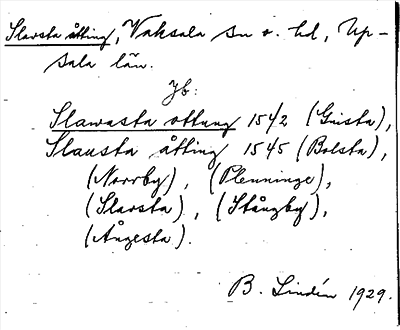 Slavsta åtting, Vaksala sn o. hd, Up-
sala län.
Jb:
Slawasta ottung 1542 (Gnista),
Slausta åtting 1545 (Bolsta),
(Norrby), (Plenninge),
(Slavsta), (Stångby),
(Ångesta).
B. Lindén 1929.